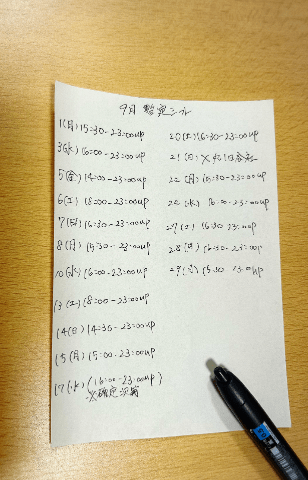 9月 暫定シフト
1(月) 15:30-23:00up
3(水) 16:00-23:00up
5(金) 14:00-23:00up
6(土) 18:00-23:00up
7(日) 16:30-23:00up
8(月) 15:30-23:00up
10(水) 16:00-23:00up
13(土) 18:00-23:00up
14(日) 14:30-23:00up
15(月) 15:00-23:00up
17(水) (16:00-23:00up)
※確定次第
20(土) 16:30-23:00up
21(日)
22(月) 15:30-23:00up
24(水) 16:00-23:00up
27(土) 16:30-23:00up
28(日) 16:30-23:00up
29(月) 15:30-23:00up